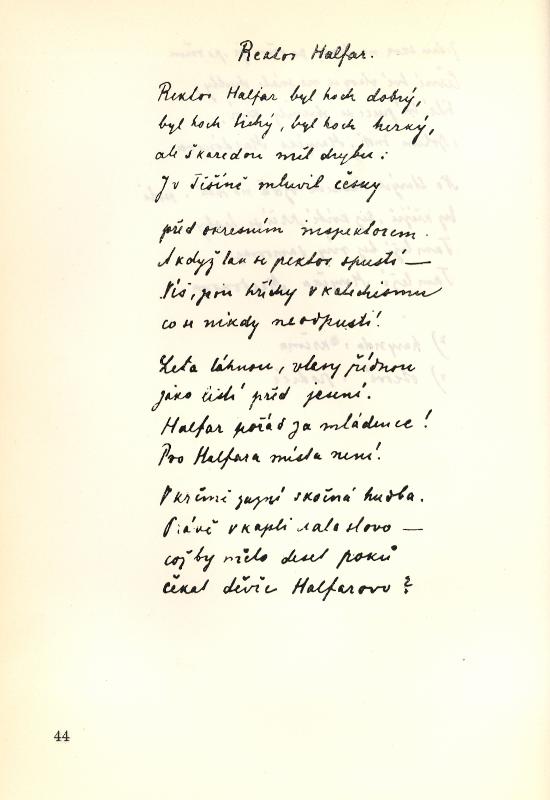 Rektor Halfar.
Rektor Halfar byl hoch dobrý,
byl hoch tichý, byl hoch herský,
ale škaredou měl chybu:
On v Těšíně mluvil česky
před okresním inspektorem.
A když tak se rektor spustí —
Víš, jsou hříchy v katechismu
co se nikdy neodpustí!
Leta táhnou, vlasy řídnou
jako listí před jesení.
Halfar pořád za mládence!
Pro Halfara místa není!
V krčmě zazní skočná hudba.
Právě v kapli slovo —
což by mělo deset roků
čekat děvče Halfarovo?
44